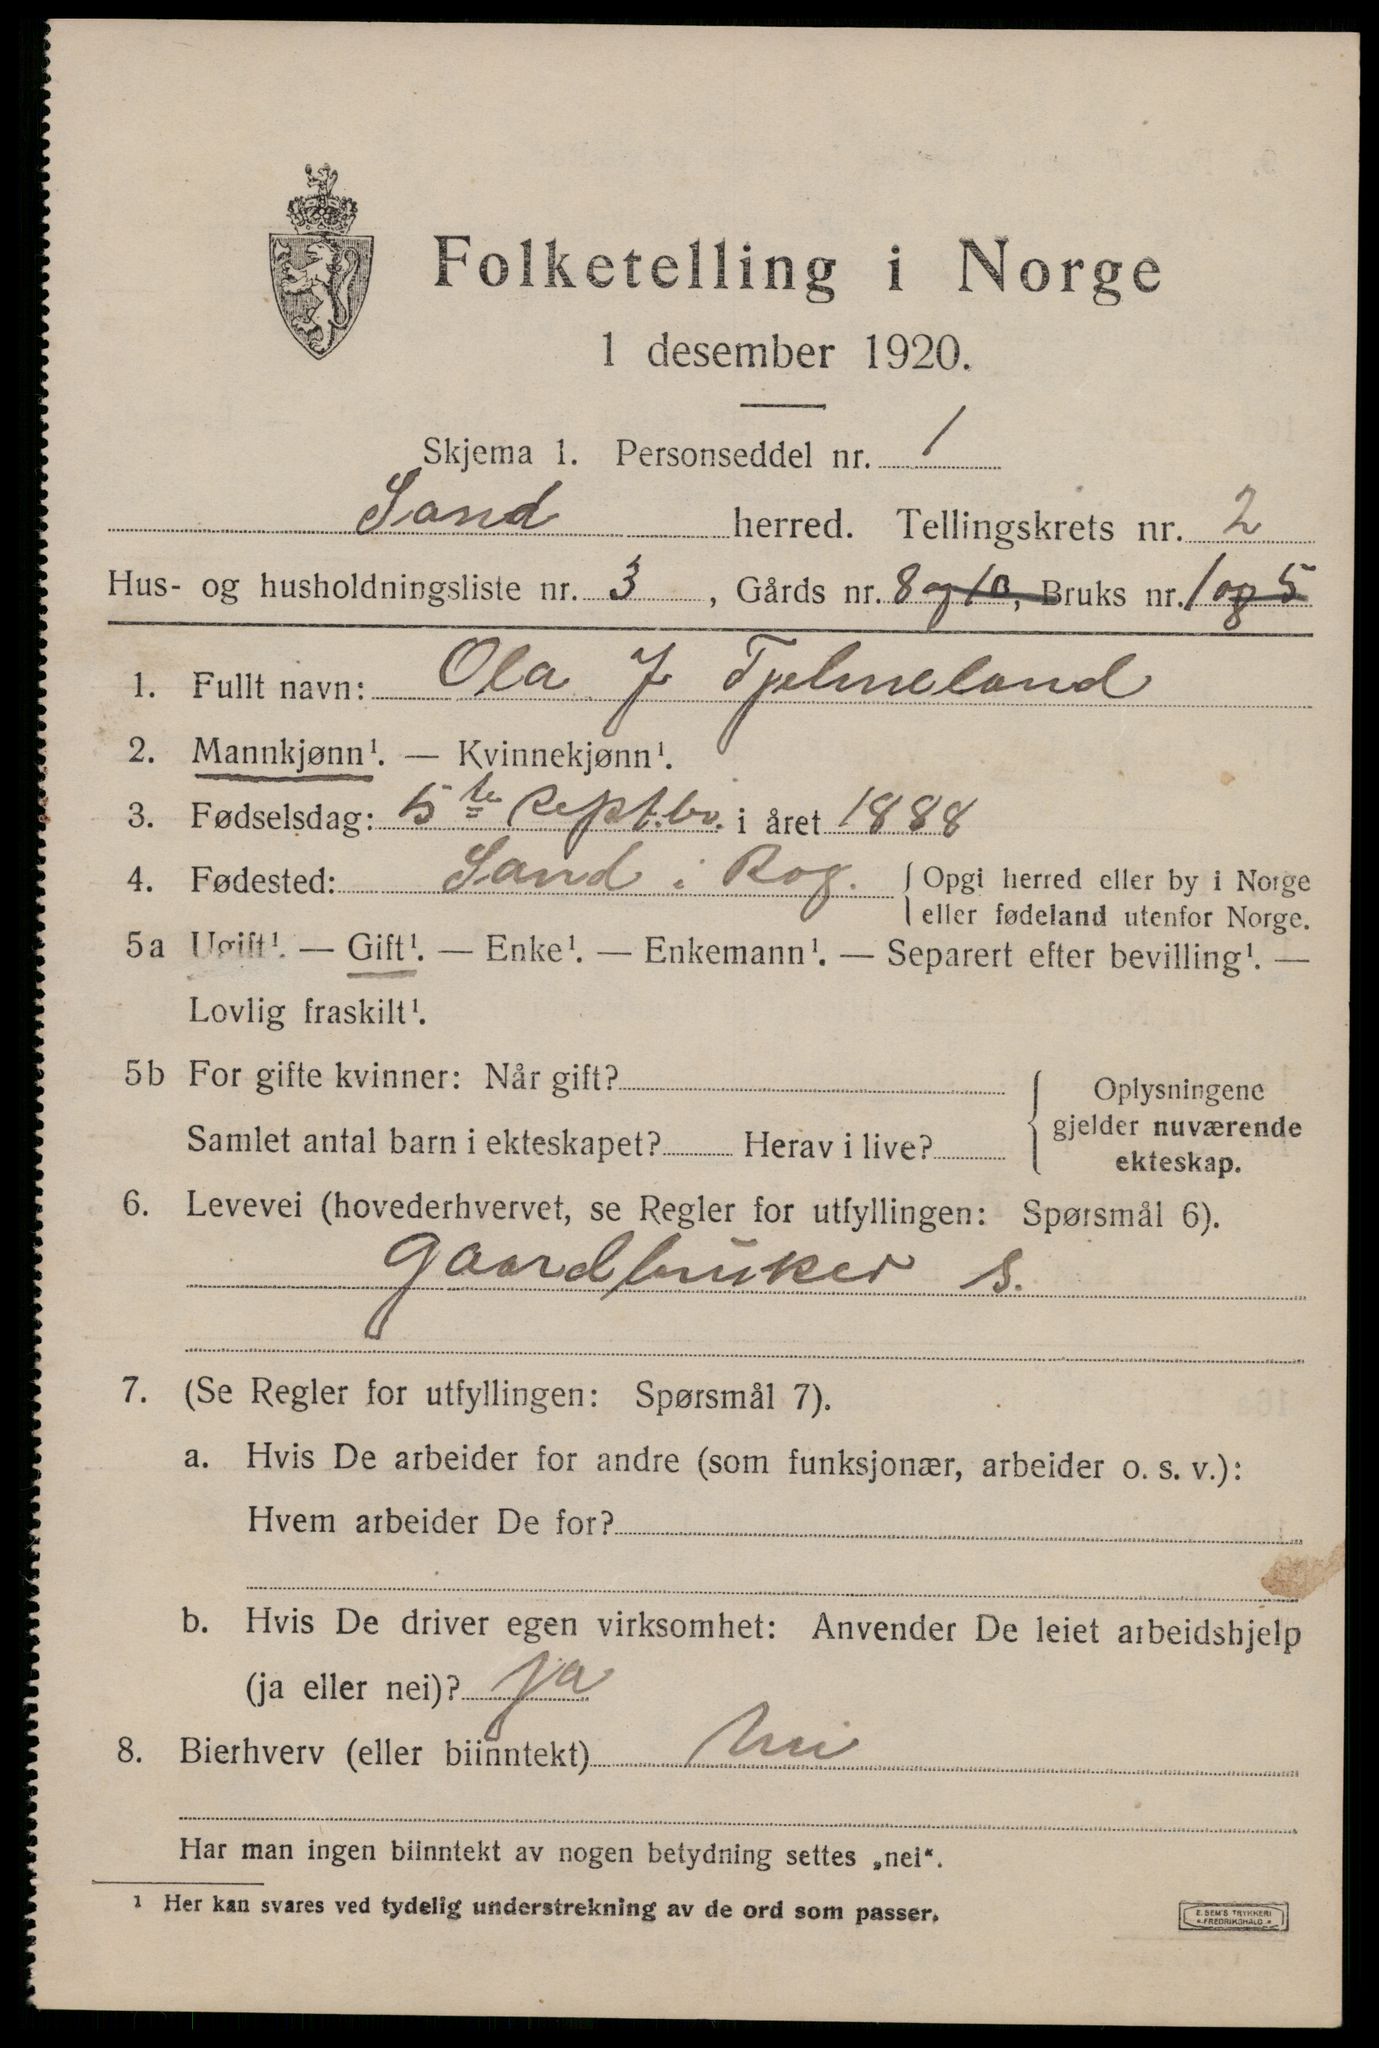 Folketelling i Norge
1 desember 1920.
Skjema 1. Personseddel nr. 1
Sand herred. Tellingskrets nr. 2
Hus- og husholdningsliste nr. 3, Gårds nr. 8 og 10, Bruks nr. 1 og 5
1. Fullt navn: Ola J Tjelmeland
2. Mannkjønn¹. — Kvinnekjønn¹.
3. Fødselsdag: 5te Septbr. i året 1888
4. Fødested: Sand i Rog. { Opgi herred eller by i Norge
eller fødeland utenfor Norge.
5a Ugift¹. — Gift¹. — Enke¹. — Enkemann¹. — Separert efter bevilling¹. —
Lovlig fraskilt¹.
5b For gifte kvinner: Når gift?
Samlet antal barn i ekteskapet? Herav i live?
{ Oplysningene
gjelder nuværende
ekteskap.
6. Levevei (hovederhvervet, se Regler for utfyllingen: Spørsmål 6).
Gaardbruker s.
7. (Se Regler for utfyllingen: Spørsmål 7).
a. Hvis De arbeider for andre (som funksjonær, arbeider o. s. v.):
Hvem arbeider De for?
b. Hvis De driver egen virksomhet: Anvender De leiet arbeidshjelp
(ja eller nei)? ja
8. Bierhverv (eller biinntekt) Nei
Har man ingen biinntekt av nogen betydning settes „nei“.
¹ Her kan svares ved tydelig understrekning av de ord som passer.
E. SEM'S TRYKKERI
FREDRIKSHALD